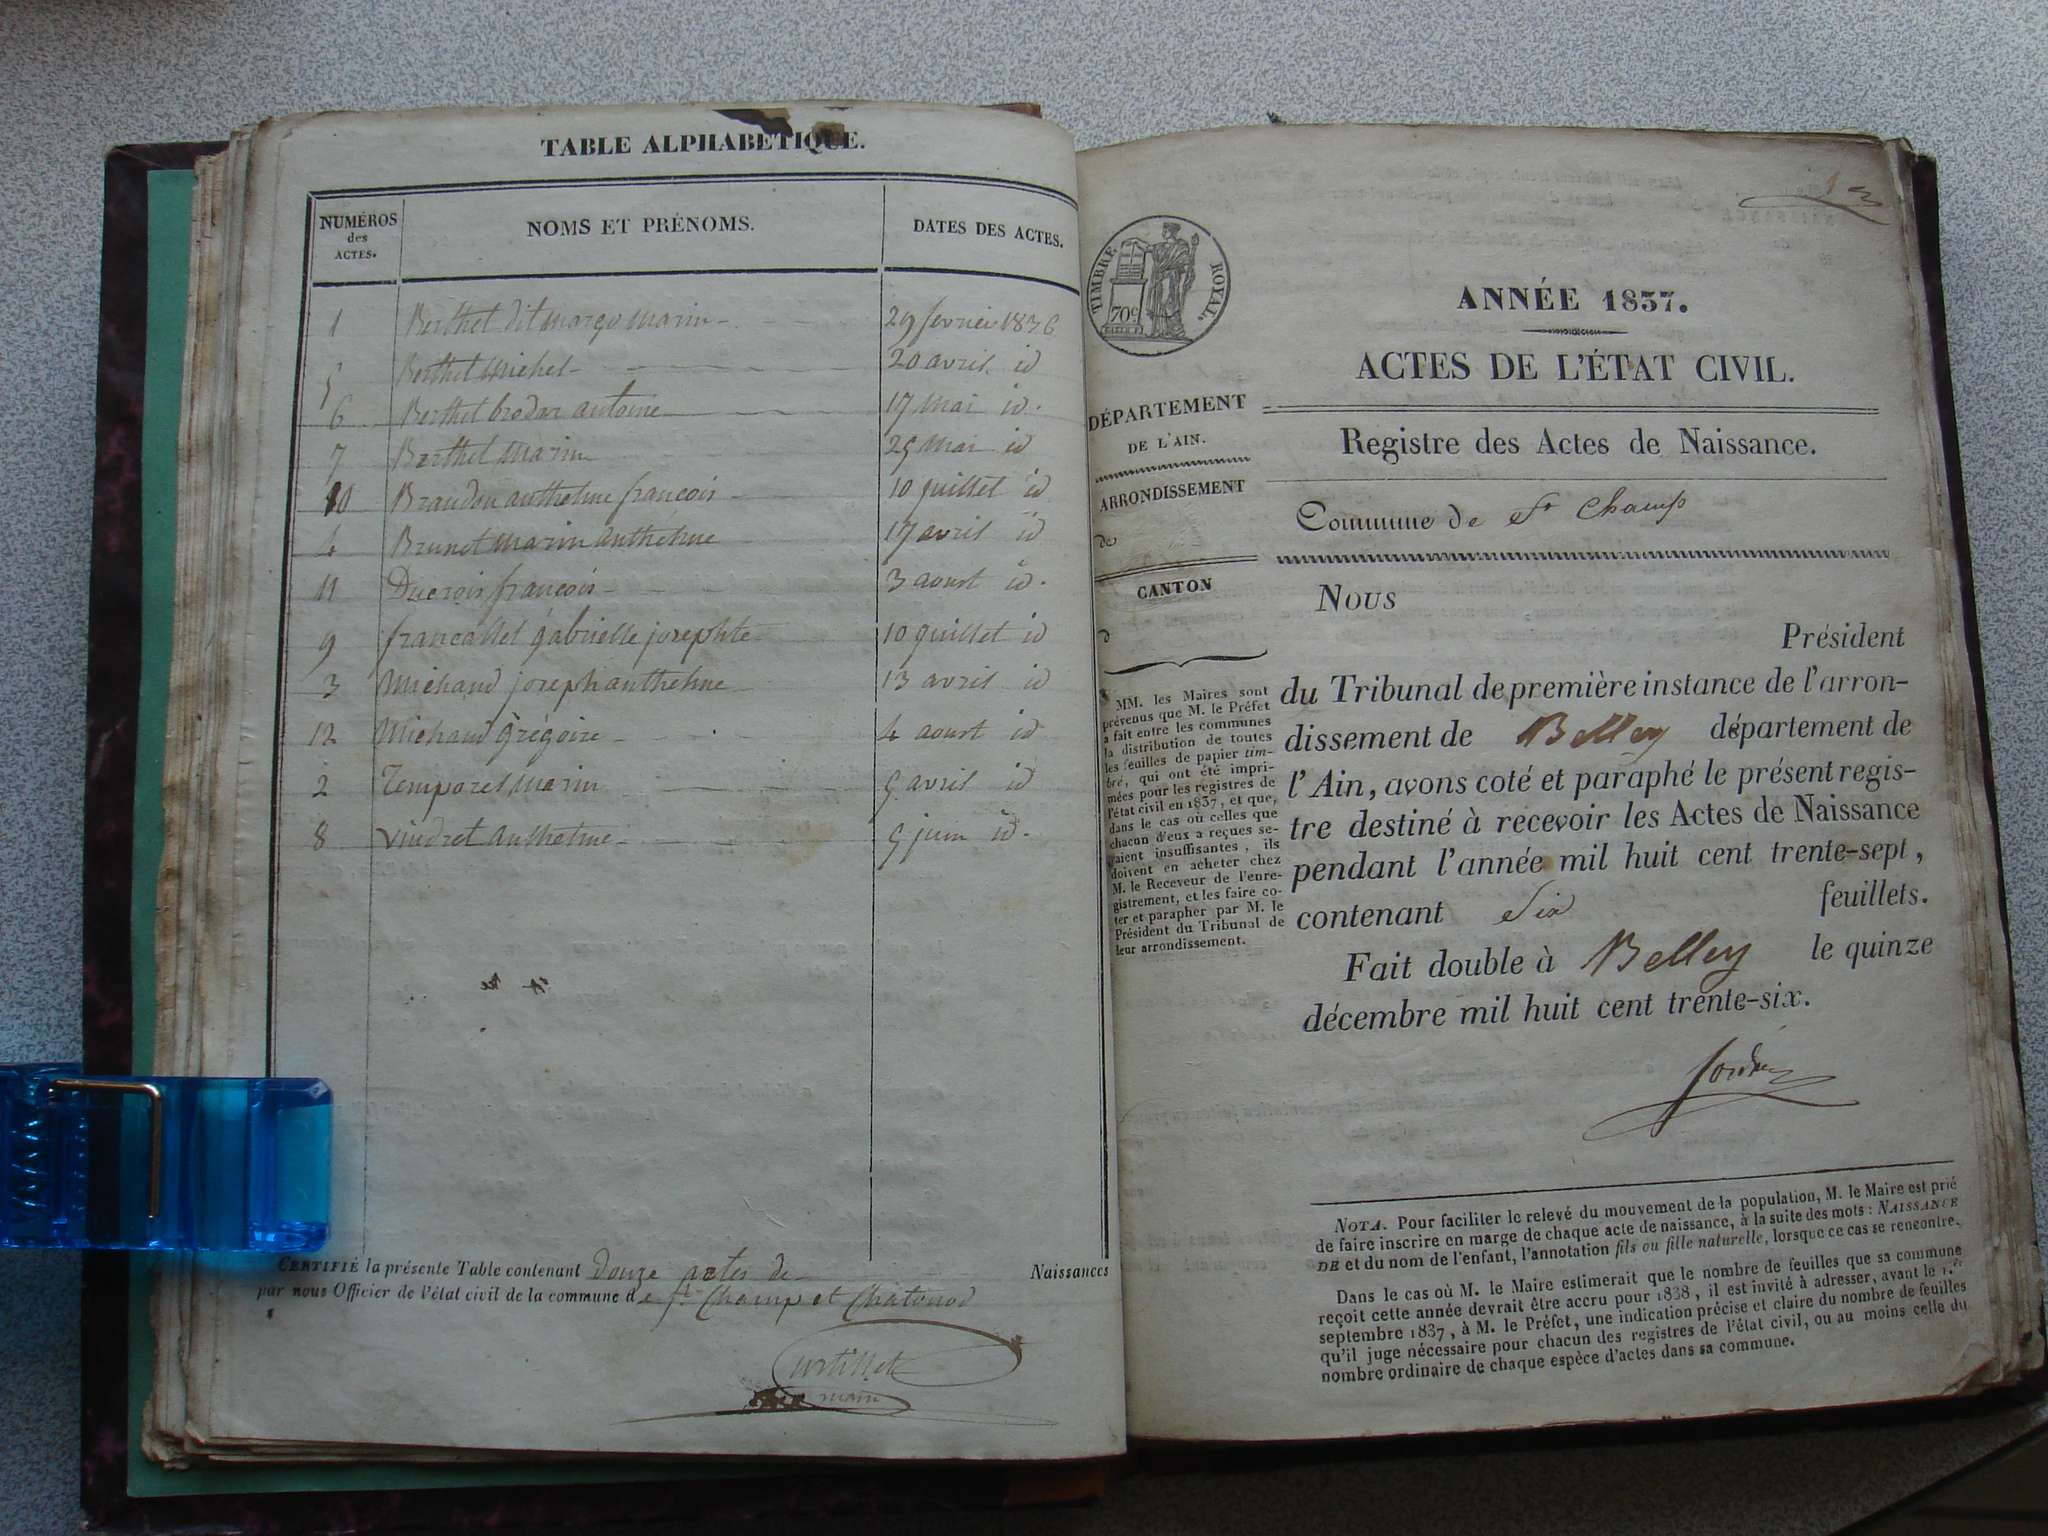 TABLE ALPHABÉTIQUE.
NUMÉROS des ACTES. NOMS ET PRÉNOMS. DATES DES ACTES.
1 Berthet dit margo marin 29 fevrier 1836
5 Berthet michel 20 avril id
6 Berthet brodar antoine 17 mai id.
7 Berthet marin 25 mai id
10 Braudon anthelme francois 10 juillet id
4 Brunet marin anthelme 17 avril id
11 Ducroir françois 3 aoust id.
9 francallet gabrielle josephte 10 juillet id
3 Michaud joseph anthelme 13 avril id
12 Michaud grégoire 4 aoust id
2 Temporel marin 5 avril id
8 Vindret anthelme 5 juin id.
CERTIFIÉ la présente Table contenant douze actes de Naissances
par nous Officier de l'état civil de la commune de St Champ et Chatonod
Curtillet
maire
TIMBRE ROYAL.
70 c
ANNÉE 1837.
ACTES DE L'ÉTAT CIVIL.
Registre des Actes de Naissance.
Commune de St Champ
DÉPARTEMENT
DE L'AIN.
ARRONDISSEMENT
de
CANTON
d
MM. les Maires sont
prévenus que M. le Préfet
a fait entre les communes
la distribution de toutes
les feuilles de papier tim-
bré, qui ont été impri-
mées pour les registres de
l'état civil en 1837, et que,
dans le cas où celles que
chacun d'eux a reçues se-
raient insuffisantes, ils
doivent en acheter chez
M. le Receveur de l'enre-
gistrement, et les faire co-
ter et parapher par M. le
Président du Tribunal de
leur arrondissement.
NOUS
Président
du Tribunal de première instance de l'arron-
dissement de Belley département de
l'Ain, avons coté et paraphé le présent regis-
tre destiné à recevoir les Actes de Naissance
pendant l'année mil huit cent trente-sept,
contenant Six feuillets.
Fait double à Belley le quinze
décembre mil huit cent trente-six.
NOTA. Pour faciliter le relevé du mouvement de la population, M. le Maire est prié
de faire inscrire en marge de chaque acte de naissance, à la suite des mots : NAISSANCE
DE et du nom de l'enfant, l'annotation fils ou fille naturelle, lorsque ce cas se rencontre.
Dans le cas où M. le Maire estimerait que le nombre de feuilles que sa commune
reçoit cette année devrait être accru pour 1838, il est invité à adresser, avant le 1.er
septembre 1837, à M. le Préfet, une indication précise et claire du nombre de feuilles
qu'il juge nécessaire pour chacun des registres de l'état civil, ou au moins celle du
nombre ordinaire de chaque espèce d'actes dans sa commune.